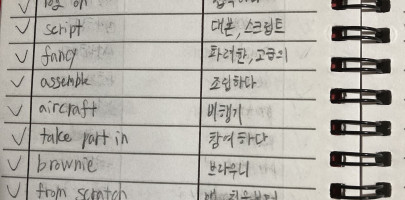 log on 접속하다
✓ script 대본, 스크립트
✓ fancy 화려한, 고급의
✓ assemble 조립하다
✓ aircraft 비행기
✓ take part in 참여하다
✓ brownie 브라우니
✓ from scratch 맨 처음부터